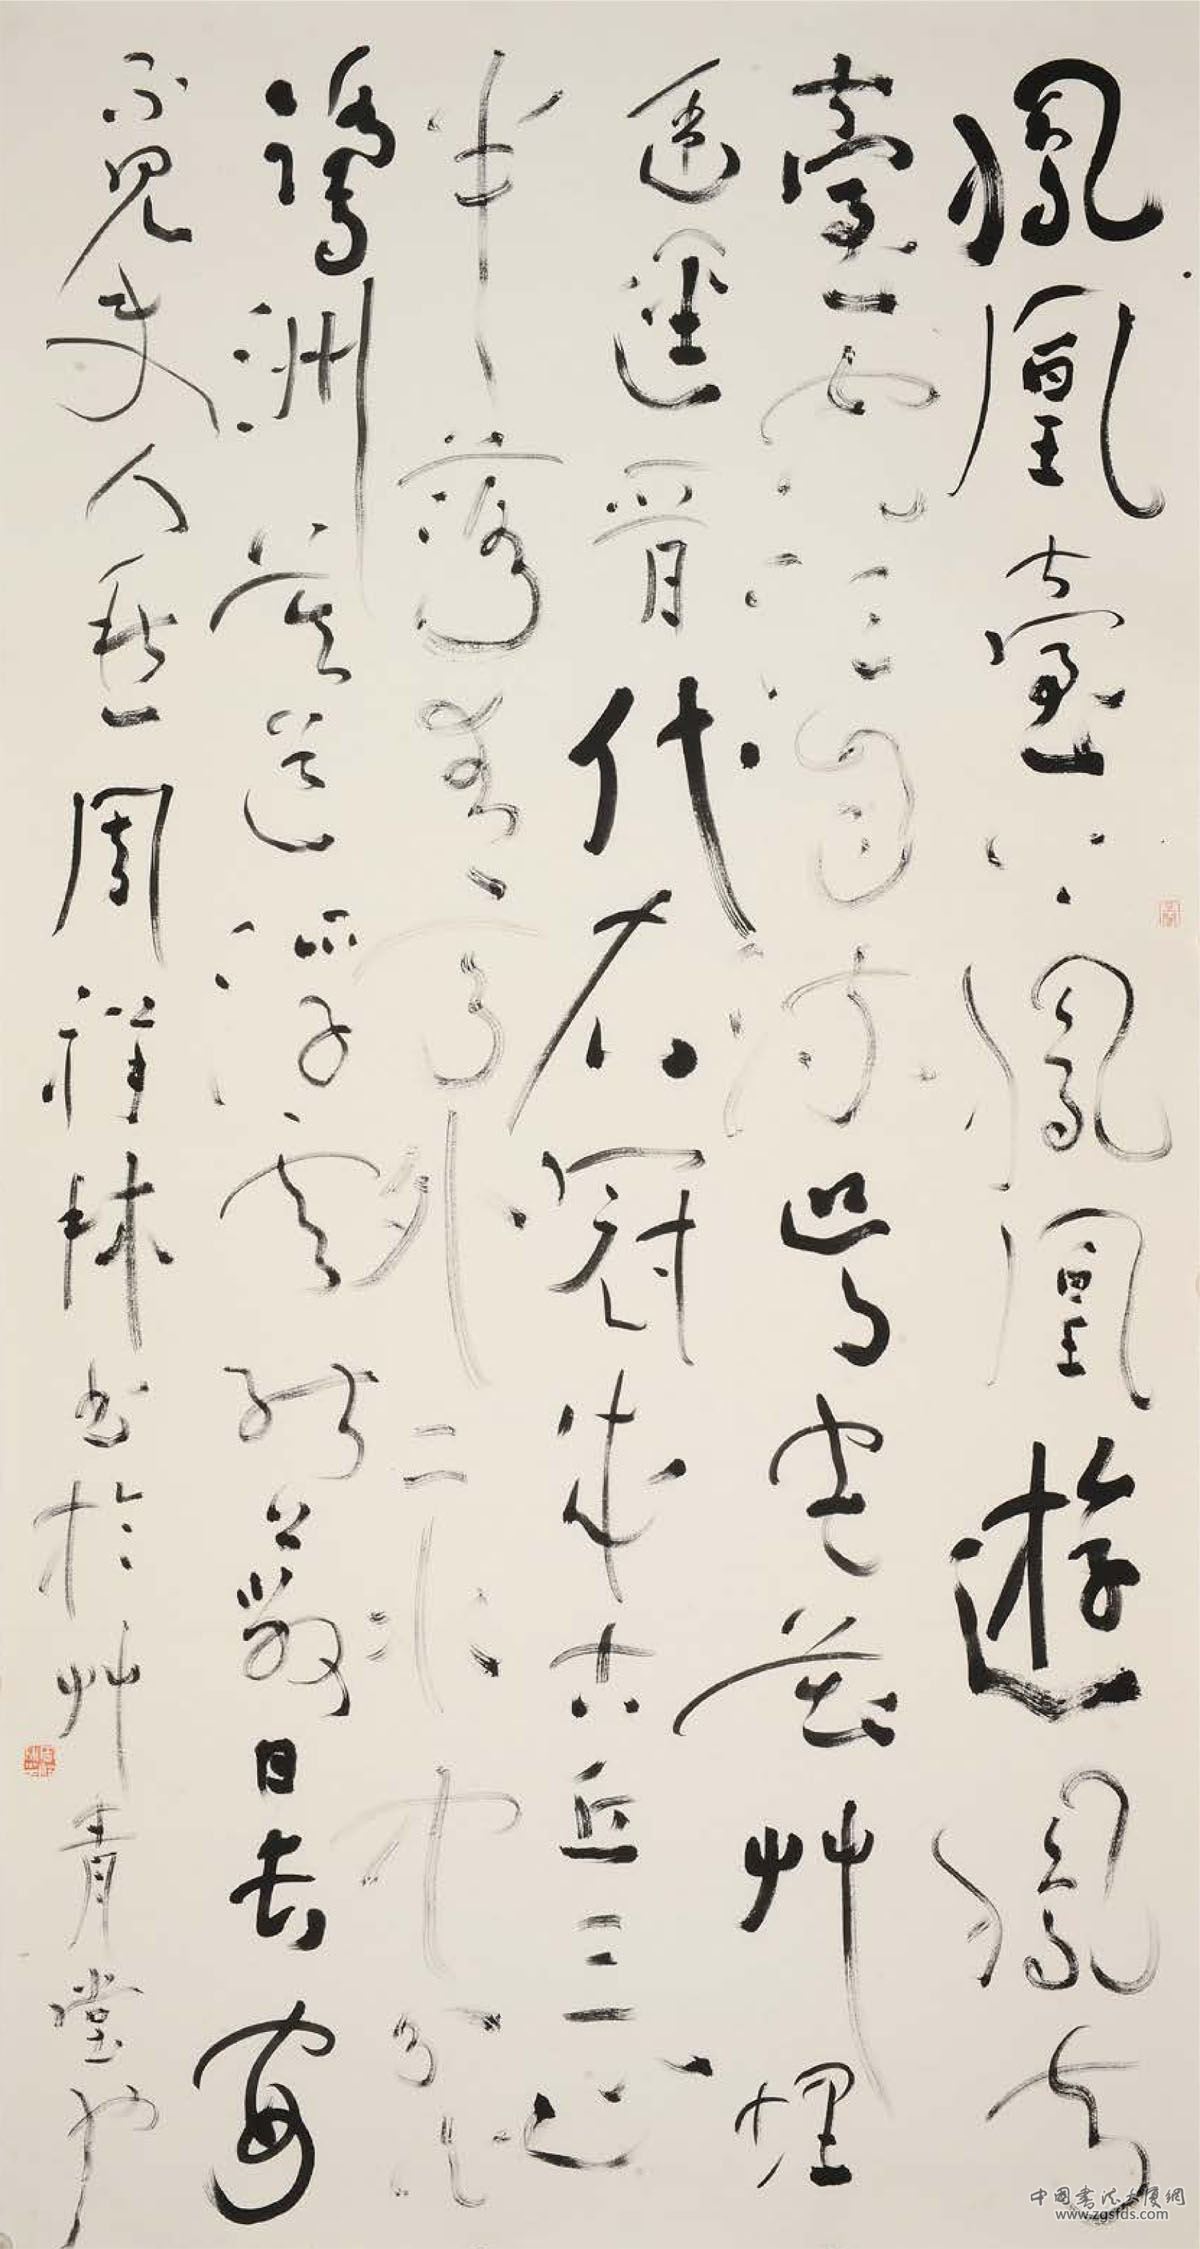 鳳凰臺上鳳凰遊鳳去
臺空江自流吳宮花艸埋
幽逕晉代衣冠成古丘三山
半落青天外二水中分白
鷺洲總為浮雲能蔽日長安
不見使人愁 周祥林書於艸青堂
中国书法大厦網
www.zgsfds.com